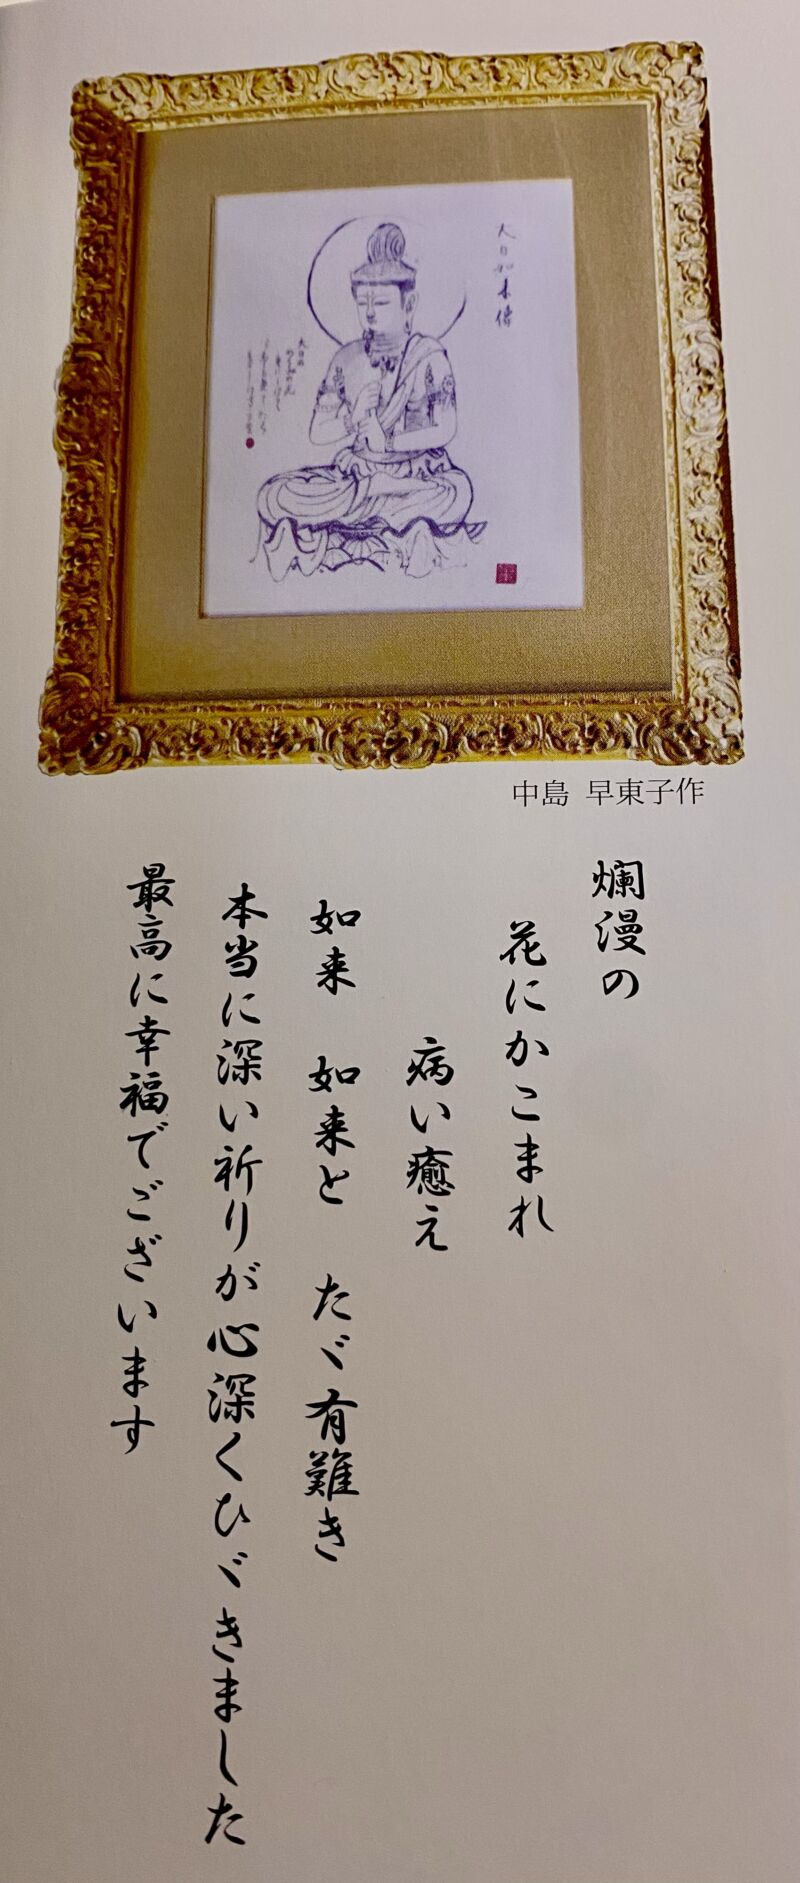 大日如来像
中島 早東子作
爛漫の
花にかこまれ
病い癒え
如来 如来と たゞ有難き
本当に深い祈りが心深くひゞきました
最高に幸福でございます